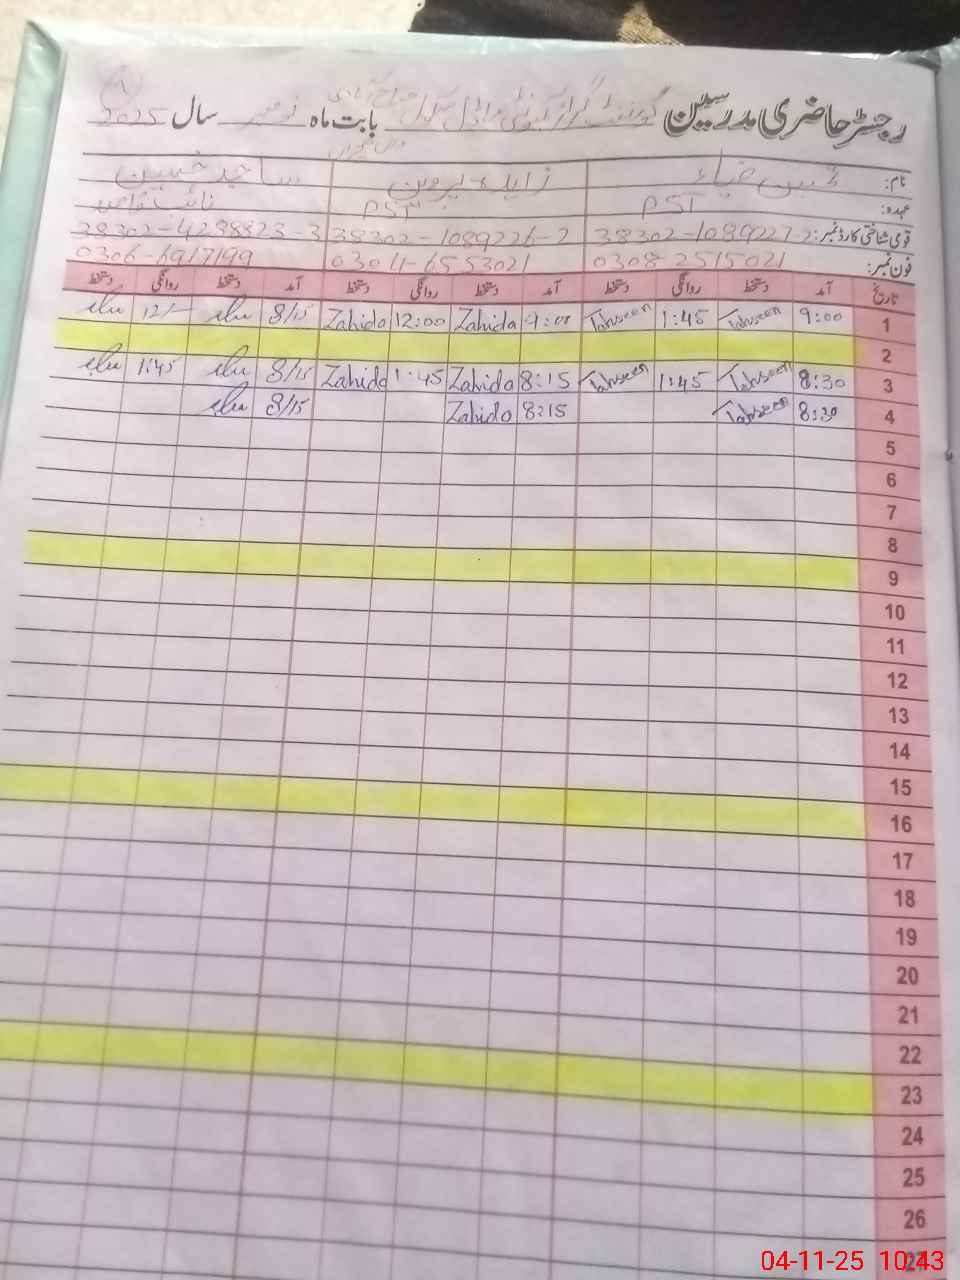 رجسٹر حاضری مدرسین گورنمنٹ گرلز ماڈل سکول بابت ماہ نومبر سال 2025
نام: تحسین ضیاء زاہدہ پروین ساجد حسین
عہدہ: PST PST نائب قاصد
قومی شناختی کارڈ نمبر: 38302-1089227-2 38302-1089226-2 38302-4298823-3
فون نمبر: 0308-2515021 0304-6553021 0306-6917199
تاریخ آمد دستخط روانگی دستخط آمد دستخط روانگی دستخط آمد دستخط روانگی دستخط
1 9:00 Tahseen 1:45 Tahseen 9:00 Zahida 12:00 Zahida 8/15 12/-
2
3 8:30 Tahseen 1:45 Tahseen 8:15 Zahida 1:45 Zahida 8/15 1:45
4 8:30 Tahseen 8:15 Zahida 8/15
5
6
7
8
9
10
11
12
13
14
15
16
17
18
19
20
21
22
23
24
25
26
27
04-11-25 10:43